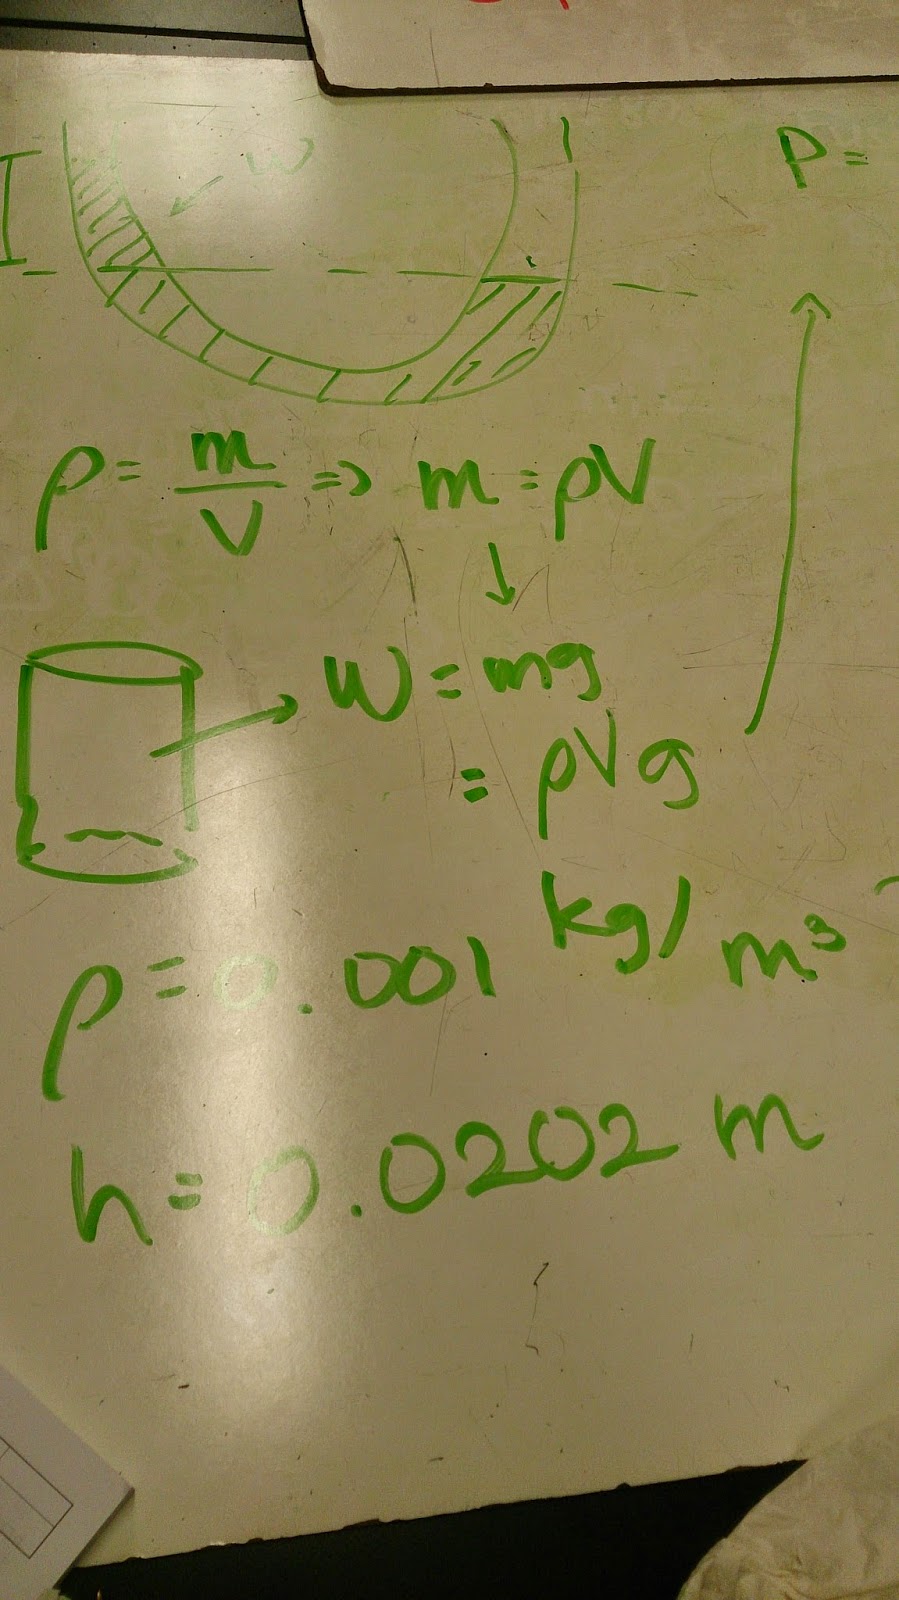 W
P =
ρ = m/V ⇒ m = ρV
W = mg
= ρVg
ρ = 0.001 kg/m³
h = 0.0202 m